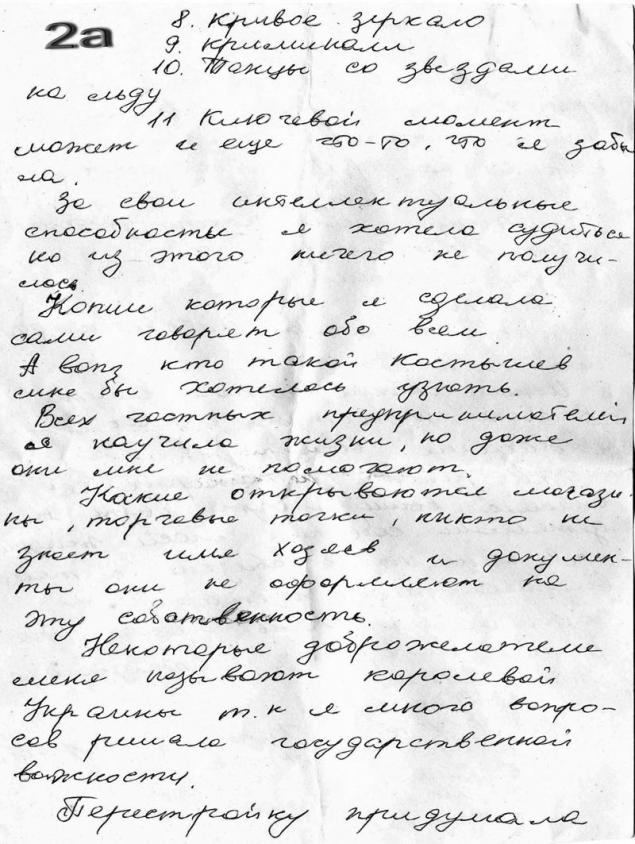 2а
8. Кривое зеркало
9. криминалл
10. Танцы со звездами
на льду
11 Ключевой момент
может и еще что-то, что я забы
ла.
За свои интеллектуальные
способности я хотела судиться
но из этого ничего не получи-
лось
Копии которые я сделала
сами говорят обо всем
А вот кто такой Костылев
мне бы хотелось узнать.
Всех частных предпринимателей
я научила жизни, но даже
они мне не помогают.
Какие открываются магази-
ны, торговые точки, никто не
знает имя хозяев и докумен-
ты они не оформляют на
эту собственность.
Некоторые доброжелатели
меня называют королевой
Украины т.к я много вопро-
сов решала государственной
важности.
Перестройку придумала